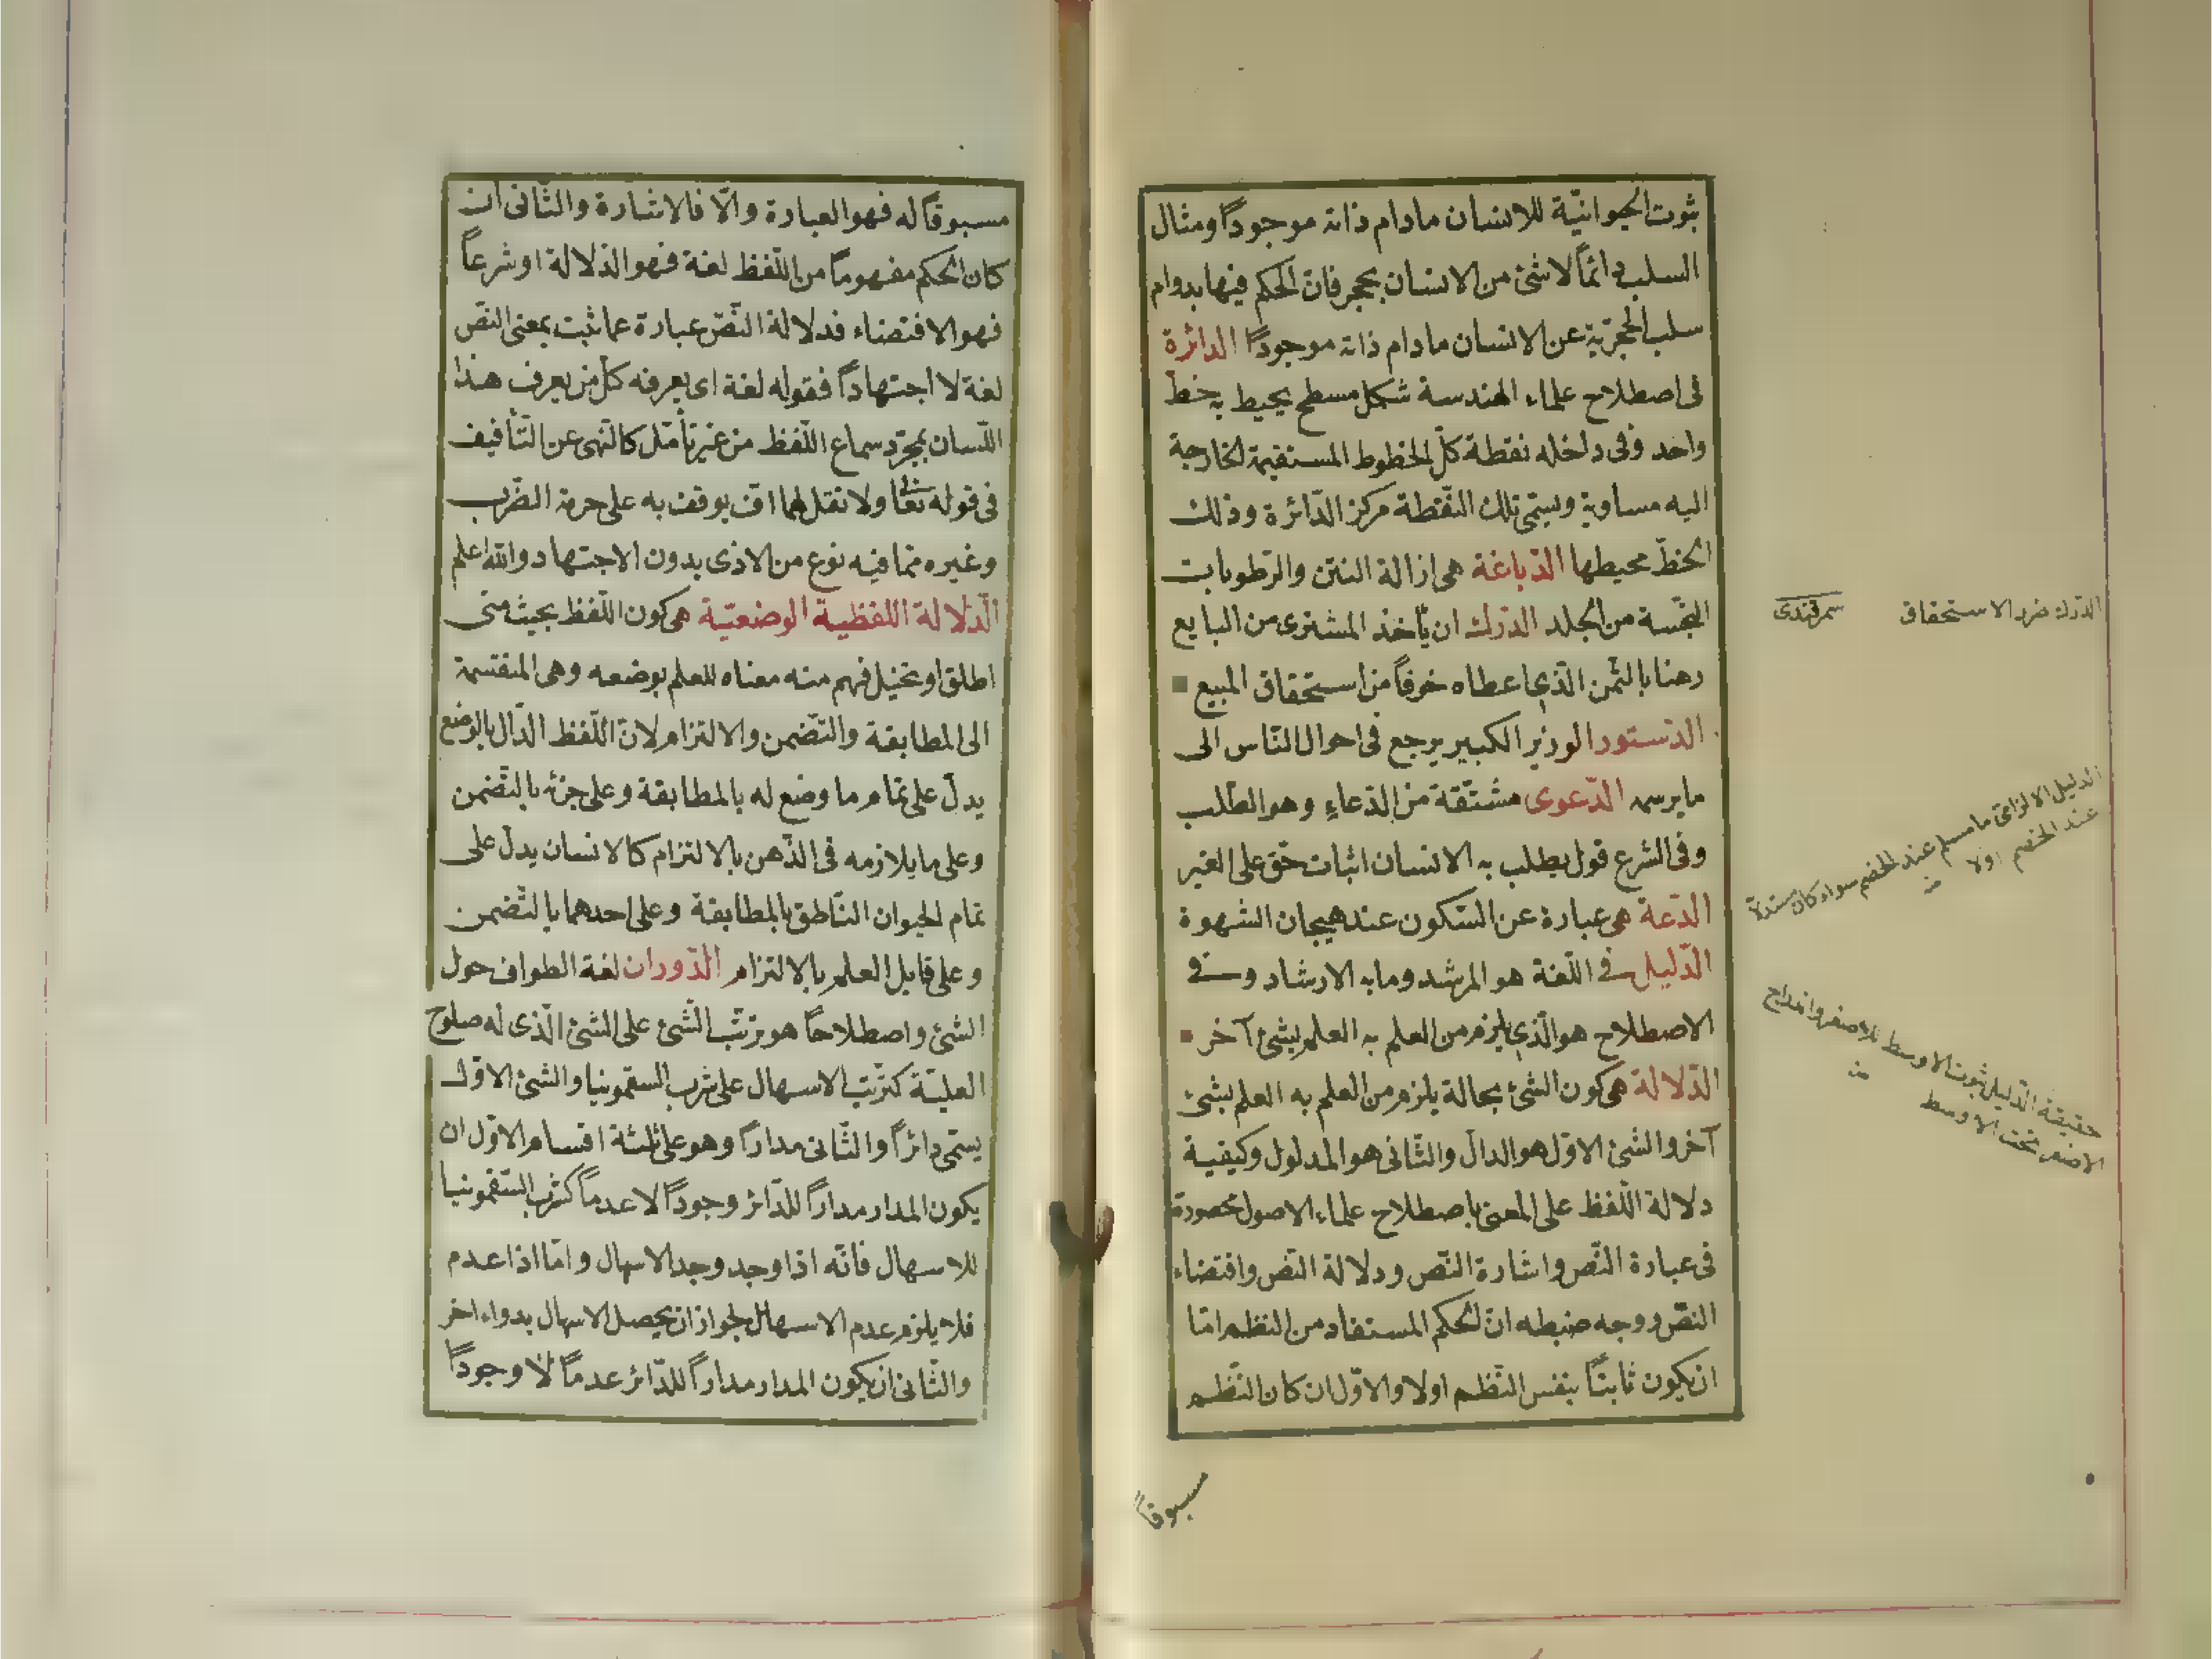 ثبوت الحيوانيّة للانسان مادام ذاته موجوداً ومثال
السلب دائماً لاشئ من الانسان بحجر فان الحكم فيها بدوام
سلب الحجريّة عن الانسان مادام ذاته موجوداً الدائرة
فى اصطلاح علماء الهندسة شكل مسطح يحيط به خط
واحد وفى داخله نقطة كلّ الخطوط المستقيمة الخارجة
اليه مساوية ويسمّى تلك النّقطة مركز الدّائرة وذلك
الخطّ محيطها الدّباغة هى ازالة النتن والرّطوبات
النجّسة من الجلد الدّرك ان يأخذ المشترى من البايع
رهنا بالثّمن الّذى اعطاه خوفاً من استحقاق المبيع
الدّستور الوزير الكبير يرجع فى احوال النّاس الى
مايرسمه الدّعوى مشتقّة من الدّعاء وهو الطّلب
وفى الشرع قول يطلب به الانسان اثبات حقّ على الغير
الدّعة هى عبارة عن السّكون عند هيجان الشهوة
الدّليل فى اللّغة هو المرشد ومابه الارشاد وفى
الاصطلاح هو الّذى يلزم من العلم به العلم بشئ آخر
الدّلالة هى كون الشئ بحالة يلزم من العلم به العلم بشئ
آخر والشئ الاوّل هو الدالّ والثّانى هو المدلول وكيفية
دلالة اللّفظ على المعنى باصطلاح علماء الاصول محصورة
فى عبارة النّص واشارة النّص ودلالة النّص واقتضاء
النصّ ووجه ضبطه ان الحكم المستفاد من النظم امّا
ان يكون ثابتاً بنفس النّظم اولا والاوّل ان كان النّظم
مسبوقاً
الدّرك ضرد الاستحقاق سمرقندى
الدليل الالزامى ماسلم عند الخصم سواء كان مستدلّا
عند الخصم اولا منه
حقيقة الدّليل ثبوت الاوسط للاصغر واندراج
الاصغر تحت الاوسط منه
مسبوقاً له فهو العبارة والّا فالاشارة والثّانى ان
كان الحكم مفهوماً من اللّفظ لغة فهو الدّلالة اوشرعاً
فهو الاقتضاء فدلالة النّصّ عبارة عما ثبت بمعنى النصّ
لغة لا اجتهاداً فقوله لغة اى يعرفه كلّ من يعرف هذا
اللّسان بمجرّد سماع اللّفظ من غير تأمّل كالنّهى عن التّأفيف
فى قوله تعالى ولا تقل لهما افّ يوقف به على حرمة الضّرب
وغيره ممّا فيه نوع من الاذى بدون الاجتهاد والله اعلم
الدّلالة اللفظية الوضعيّة هى كون اللّفظ بحيث متى
اطلق او تخيل فهم منه معناه للعلم بوضعه وهى المنقسمة
الى المطابقة والتّضمن والالتزام لانّ اللّفظ الدّال بالوضع
يدلّ على تمام ما وضع له بالمطابقة وعلى جزئه بالتّضمن
وعلى مايلازمه فى الذّهن بالالتزام كالانسان يدلّ على
تمام الحيوان النّاطق بالمطابقة وعلى احدهما بالتّضمن
وعلى قابل العلم بالالتزام الدّوران لغة الطواف حول
الشئ واصطلاحاً هو ترتّب الشئ على الشئ الّذى له صلوح
العليّة كترتّب الاسهال على شرب السقمونيا والشئ الاوّل
يسمّى دائراً والثّانى مداراً وهو على ثلثة اقسام الاوّل ان
يكون المدار مداراً للدّائر وجوداً لا عدماً كشرب السّقمونيا
للاسهال فانّه اذا وجد وجد الاسهال وامّا اذا عدم
فلا يلزم عدم الاسهال لجواز ان يحصل الاسهال بدواء اخر
والثّانى ان يكون المدار مداراً للدّائر عدماً لا وجوداً